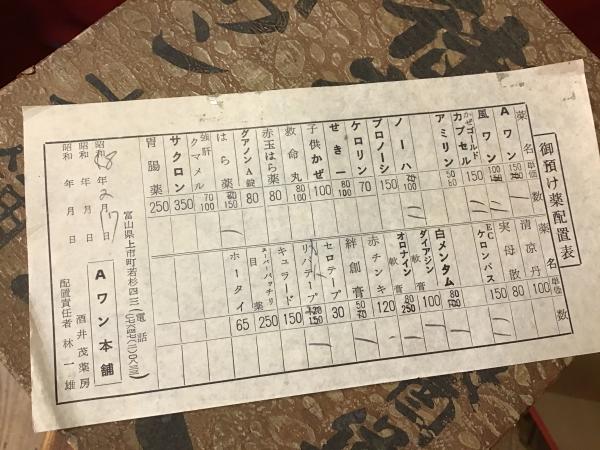 御預け薬配置表
薬名 単価 数 薬名 単価 数
Aワン 150
風ワン 100 150
かぜゴールドカプセル
アミリン 50 80
ノーハ 70 100
ブロノーシ 150
ケロリン 70
せきー 80 100
子供かぜ 100
救命丸 80 100
赤玉はら薬 80
ダアノンA錠 80
はら薬 150
強肝クマメル 70 100
サクロン 350
胃腸薬 250
清凉丹 100
実母散 80
ECケロンパス 150
白メンタム 80 100
ダイアジン軟膏 100
オロナイン軟膏 80 250
赤チンキ 120
絆創膏 50 70
セロテープ 30
リバテープ 120 150
キュラード 150
スーパーパッチリ目薬 250
ホータイ 65
昭和58年2月17日
昭和 年 月 日
昭和 年 月 日
富山県上市町若杉四三
電話
Aワン本舗
酒井茂薬房
配置責任者 林一雄